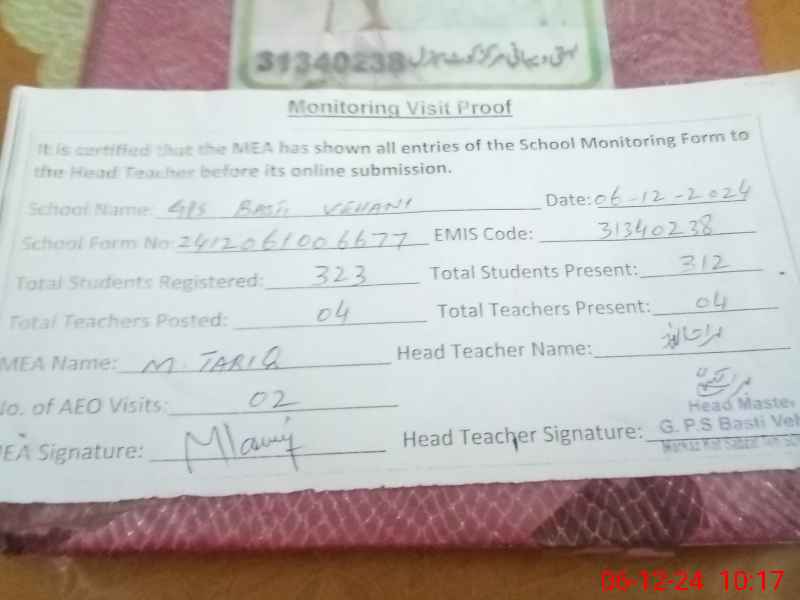 31340238
Monitoring Visit Proof
It is certified that the MEA has shown all entries of the School Monitoring Form to
the Head Teacher before its online submission.
School Name: GPS BASTI VEHANI Date: 06-12-2024
School Form No: 2412061006677 EMIS Code: 31340238
Total Students Registered: 323 Total Students Present: 312
Total Teachers Posted: 04 Total Teachers Present: 04
MEA Name: M. TARIQ Head Teacher Name:
No. of AEO Visits: 02
Head Master
MEA Signature: Head Teacher Signature: G.P.S Basti Veh
06-12-24 10:17